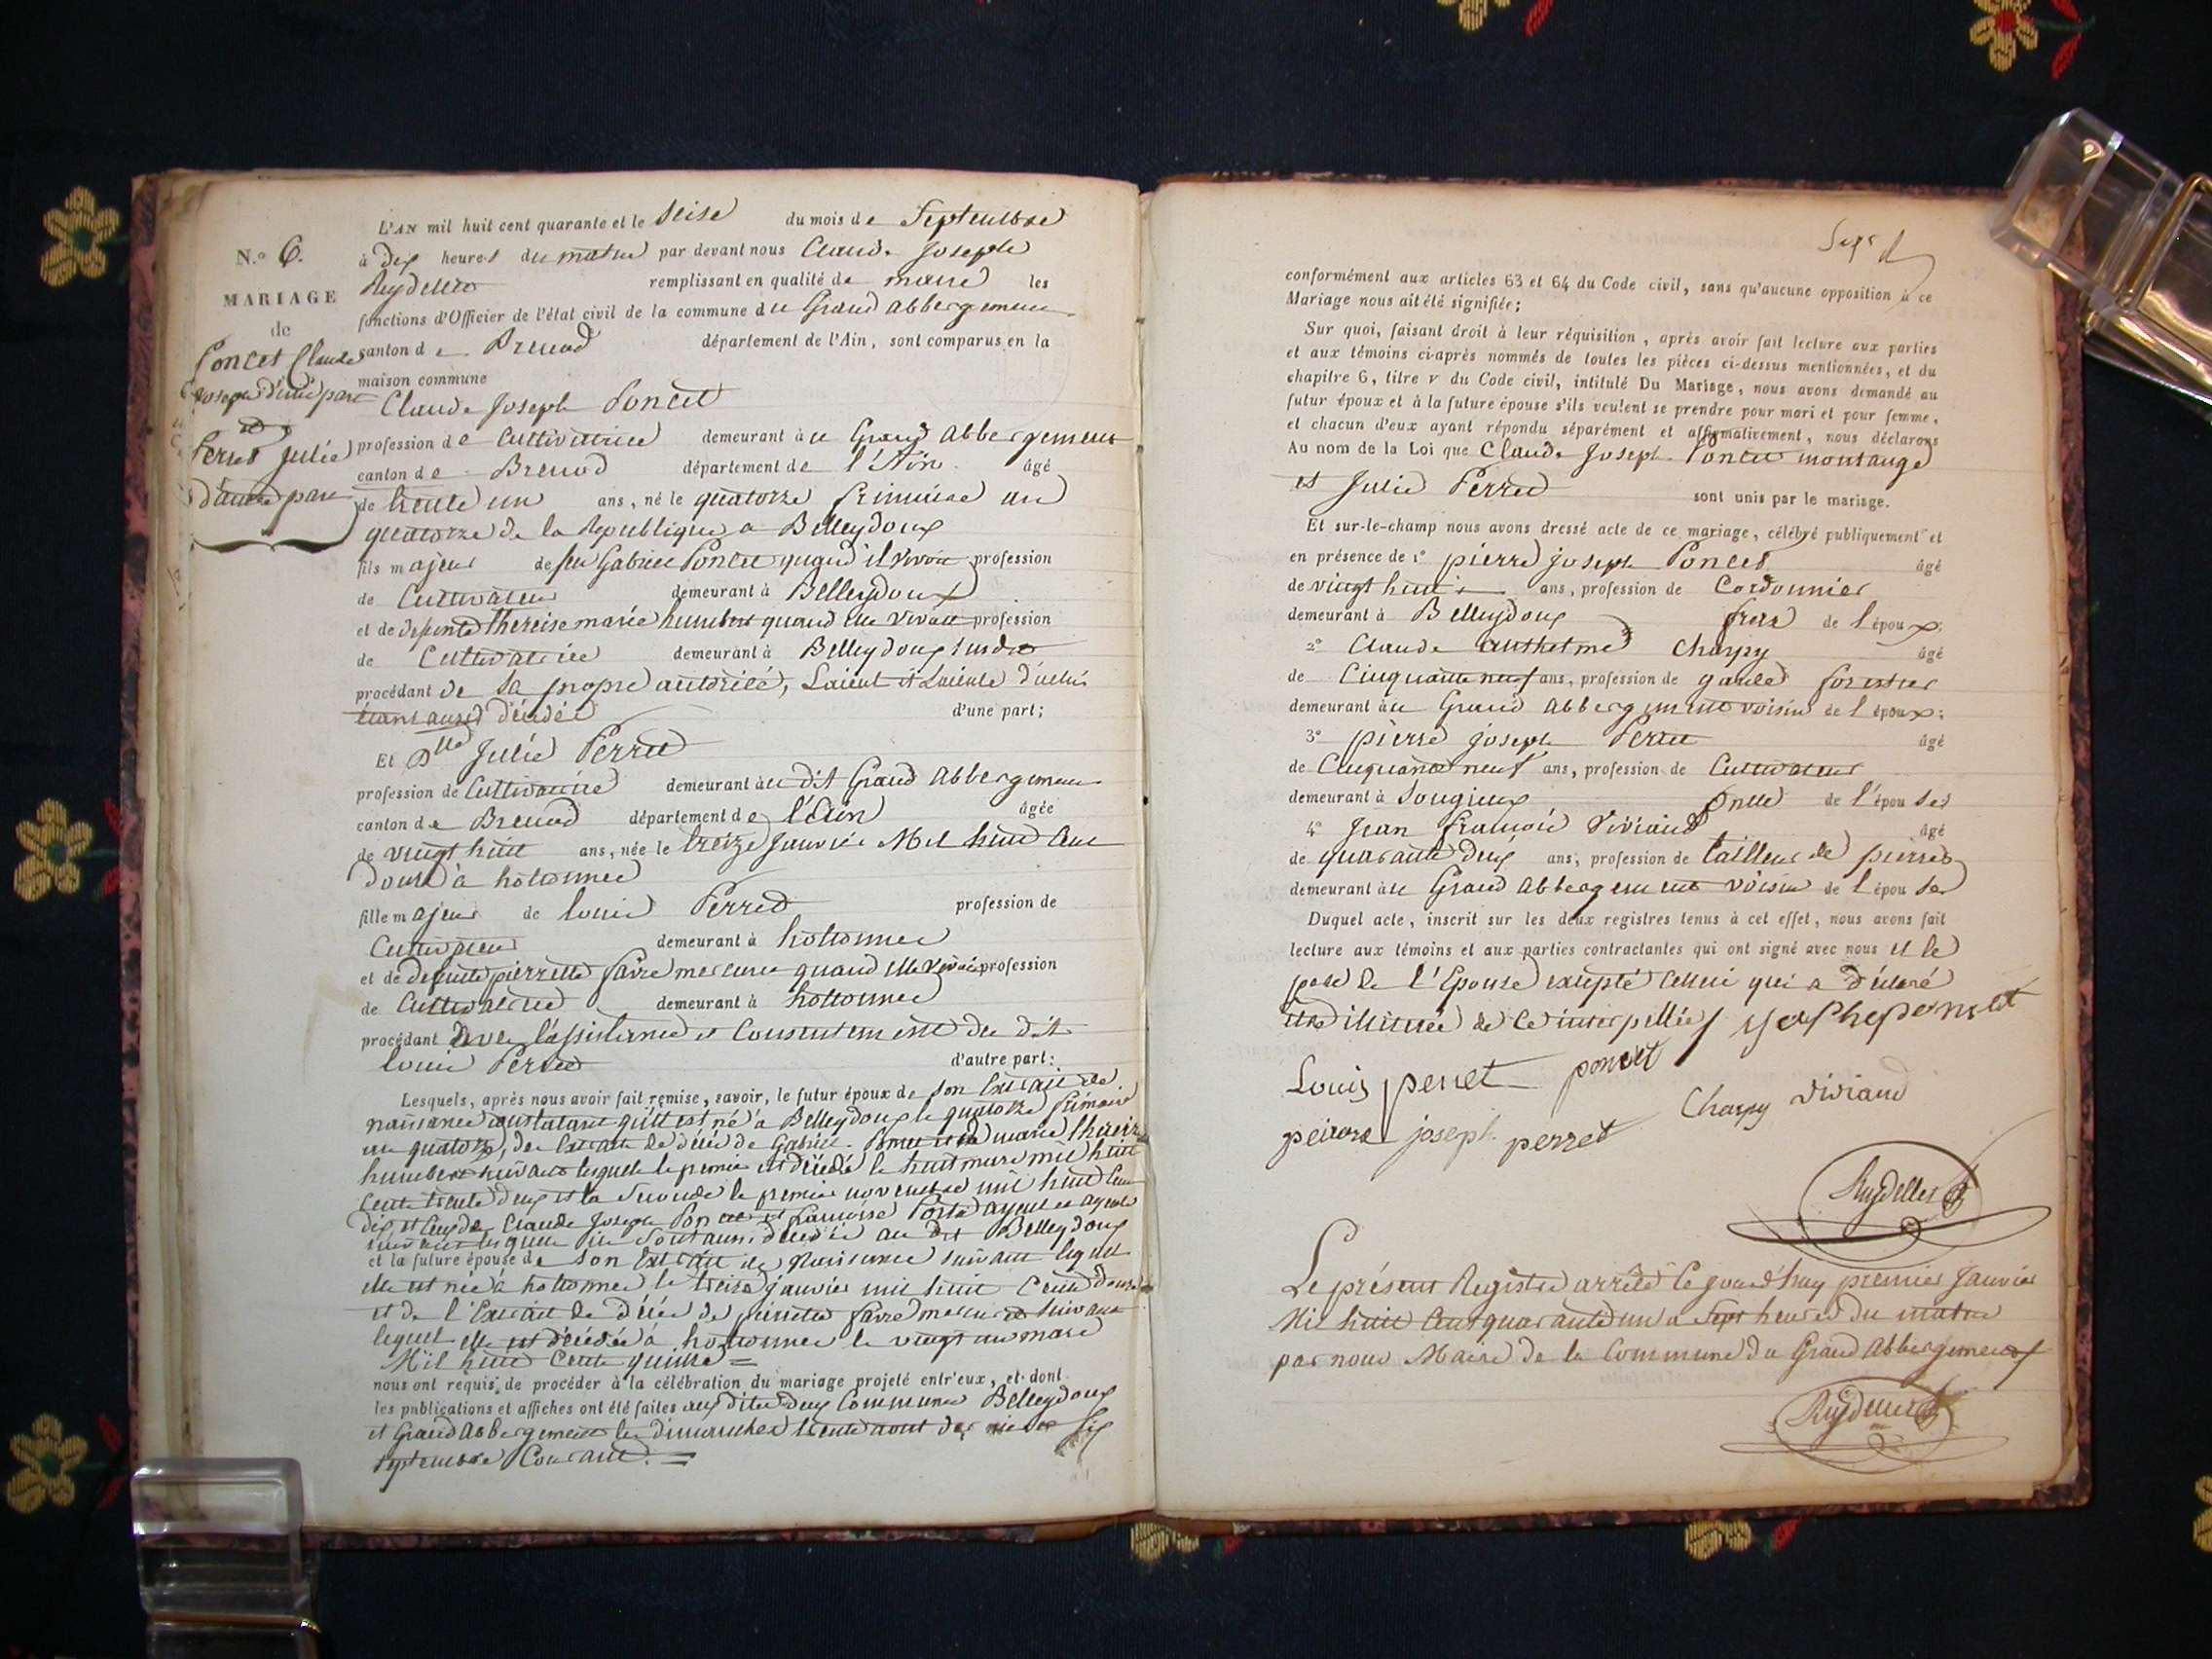 N.° 6.
MARIAGE
de
Poncet Claude
Joseph d'une part
et
Perret Julie
d'autre part
L'AN mil huit cent quarante et le seise du mois de Septembre
à dix heures du matin par devant nous Claude Joseph
Reydellet remplissant en qualité de maire les
fonctions d'Officier de l'état civil de la commune du Grand abbergement
canton de Brenod département de l'Ain, sont comparus en la
maison commune
Claude Joseph Poncet
profession de Cultivatrice demeurant au Grand Abbergement
canton de Brenod département de l'Ain âgé
de trente un ans, né le quatorze frimaire an
quatorze de la République a Belleydoux
fils majeur de feu Gabriel Poncet quand il vivoit profession
de Cultivateur demeurant à Belleydoux
et de defunte thereise marie humbert quand elle vivait profession
de Cultivatrice demeurant à Belleydoux susdit
procédant de sa propre autorité, L'aieul et L'aieule d'icelui
étant aussi décédés d'une part;
Et Dlle Julie Perret
profession de Cultivatrice demeurant au dit Grand Abbergement
canton de Brenod département de l'Ain âgée
de vingt huit ans, née le treize Janvier Mil huit Cent
douse à hotonnes
fille majeur de louis Perret profession de
Cultivateur demeurant à hotonnes
et de defunte pierrette favre mercuret quand elle vivoit profession
de Cultivatrice demeurant à hotonnes
procédant avec l'assistance et Consentement du dit
louis Perret d'autre part:
Lesquels, après nous avoir fait remise, savoir, le futur époux de son Extrait de
naissance constatant qu'il est né à Belleydoux le quatorze frimaire
an quatorze, des Extraits de décès de Gabriel Poncet et de marie thereise
humbert suivant lesquels le premier est décédé le huit mars mil huit
Cent trente deux et la seconde le premier novembre mil huit Cent
dix et Ceux de Claude Joseph Poncet et francoise Poste ayeul et ayeule
suivant lesquels ils sont aussi décédés au dit Belleydoux
et la future épouse de son Extrait de Naissance suivant lequel
elle est née à hotonnes le treize Janvier mil huit Cent douse
et de l'Extrait de décès de pierrette favre mercuret suivant
lequel elle est décédée à hotonnes le vingt un mars
Mil huit Cent quinse =
nous ont requis de procéder à la célébration du mariage projeté entr'eux, et dont
les publications et affiches ont été faites aux dites deux Communes Belleydoux
et Grand Abbergement les dimanches trente aout dernier et six
septembre Courant. =
Sept
conformément aux articles 63 et 64 du Code civil, sans qu'aucune opposition à ce
Mariage nous ait été signifiée;
Sur quoi, faisant droit à leur réquisition, après avoir fait lecture aux parties
et aux témoins ci-après nommés de toutes les pièces ci-dessus mentionnées, et du
chapitre 6, titre v du Code civil, intitulé Du Mariage, nous avons demandé au
futur époux et à la future épouse s'ils veulent se prendre pour mari et pour femme,
et chacun d'eux ayant répondu séparément et affirmativement, nous déclarons
Au nom de la Loi que Claude Joseph Poncet montange
et Julie Perret sont unis par le mariage.
Et sur-le-champ nous avons dressé acte de ce mariage, célébré publiquement et
en présence de 1° pierre joseph Poncet âgé
de vingt huit ans, profession de Cordonnier
demeurant à Belleydoux frere de l'époux:
2° Claude anthelme Charpy âgé
de Cinquante neuf ans, profession de garde forestier
demeurant au Grand Abbergement voisin de l'époux:
3° pierre joseph Perret âgé
de Cinquante neuf ans, profession de Cultivateur
demeurant à Songieux Oncle de l'épouse
4° Jean francois Viviand âgé
de quarante deux ans, profession de tailleur de pierres
demeurant au Grand Abbergement voisin de l'épouse
Duquel acte, inscrit sur les deux registres tenus à cet effet, nous avons fait
lecture aux témoins et aux parties contractantes qui ont signé avec nous et le
pere de l'Epouse excepté cette qui a déclaré
etre illitérée de ce interpellée josephe poncet
Louis perret poncet
Charpy Viviand
peirore joseph perret
Reydellet
Le présent Registre arrêté ce jourd'huy premier Janvier
Mil huit Cent quarante un a sept heures du matin
par nous Maire de la Commune du Grand Abbergement
Reydellet